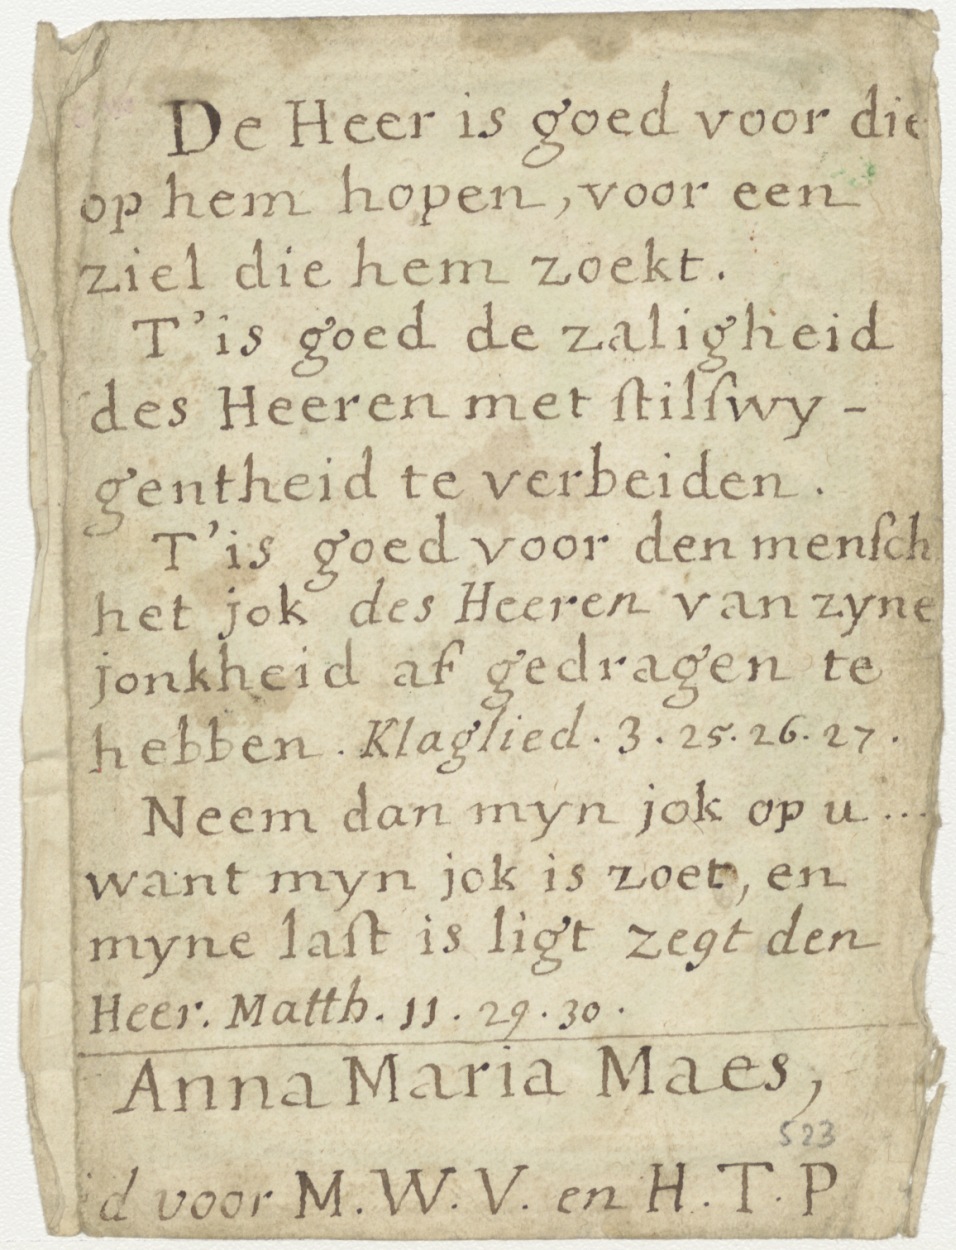 De Heer is goed voor die
op hem hopen, voor een
ziel die hem zoekt.
T'is goed de zaligheid
des Heeren met ſtilſwy-
gentheid te verbeiden.
T'is goed voor den menſch
het jok des Heeren van zyne
jonkheid af gedragen te
hebben. Klaglied. 3. 25. 26. 27.
Neem dan myn jok op u...
want myn jok is zoet, en
myne laſt is ligt zegt den
Heer. Matth. 11. 29. 30.
Anna Maria Maes,
523
d voor M. W. V. en H. T. P